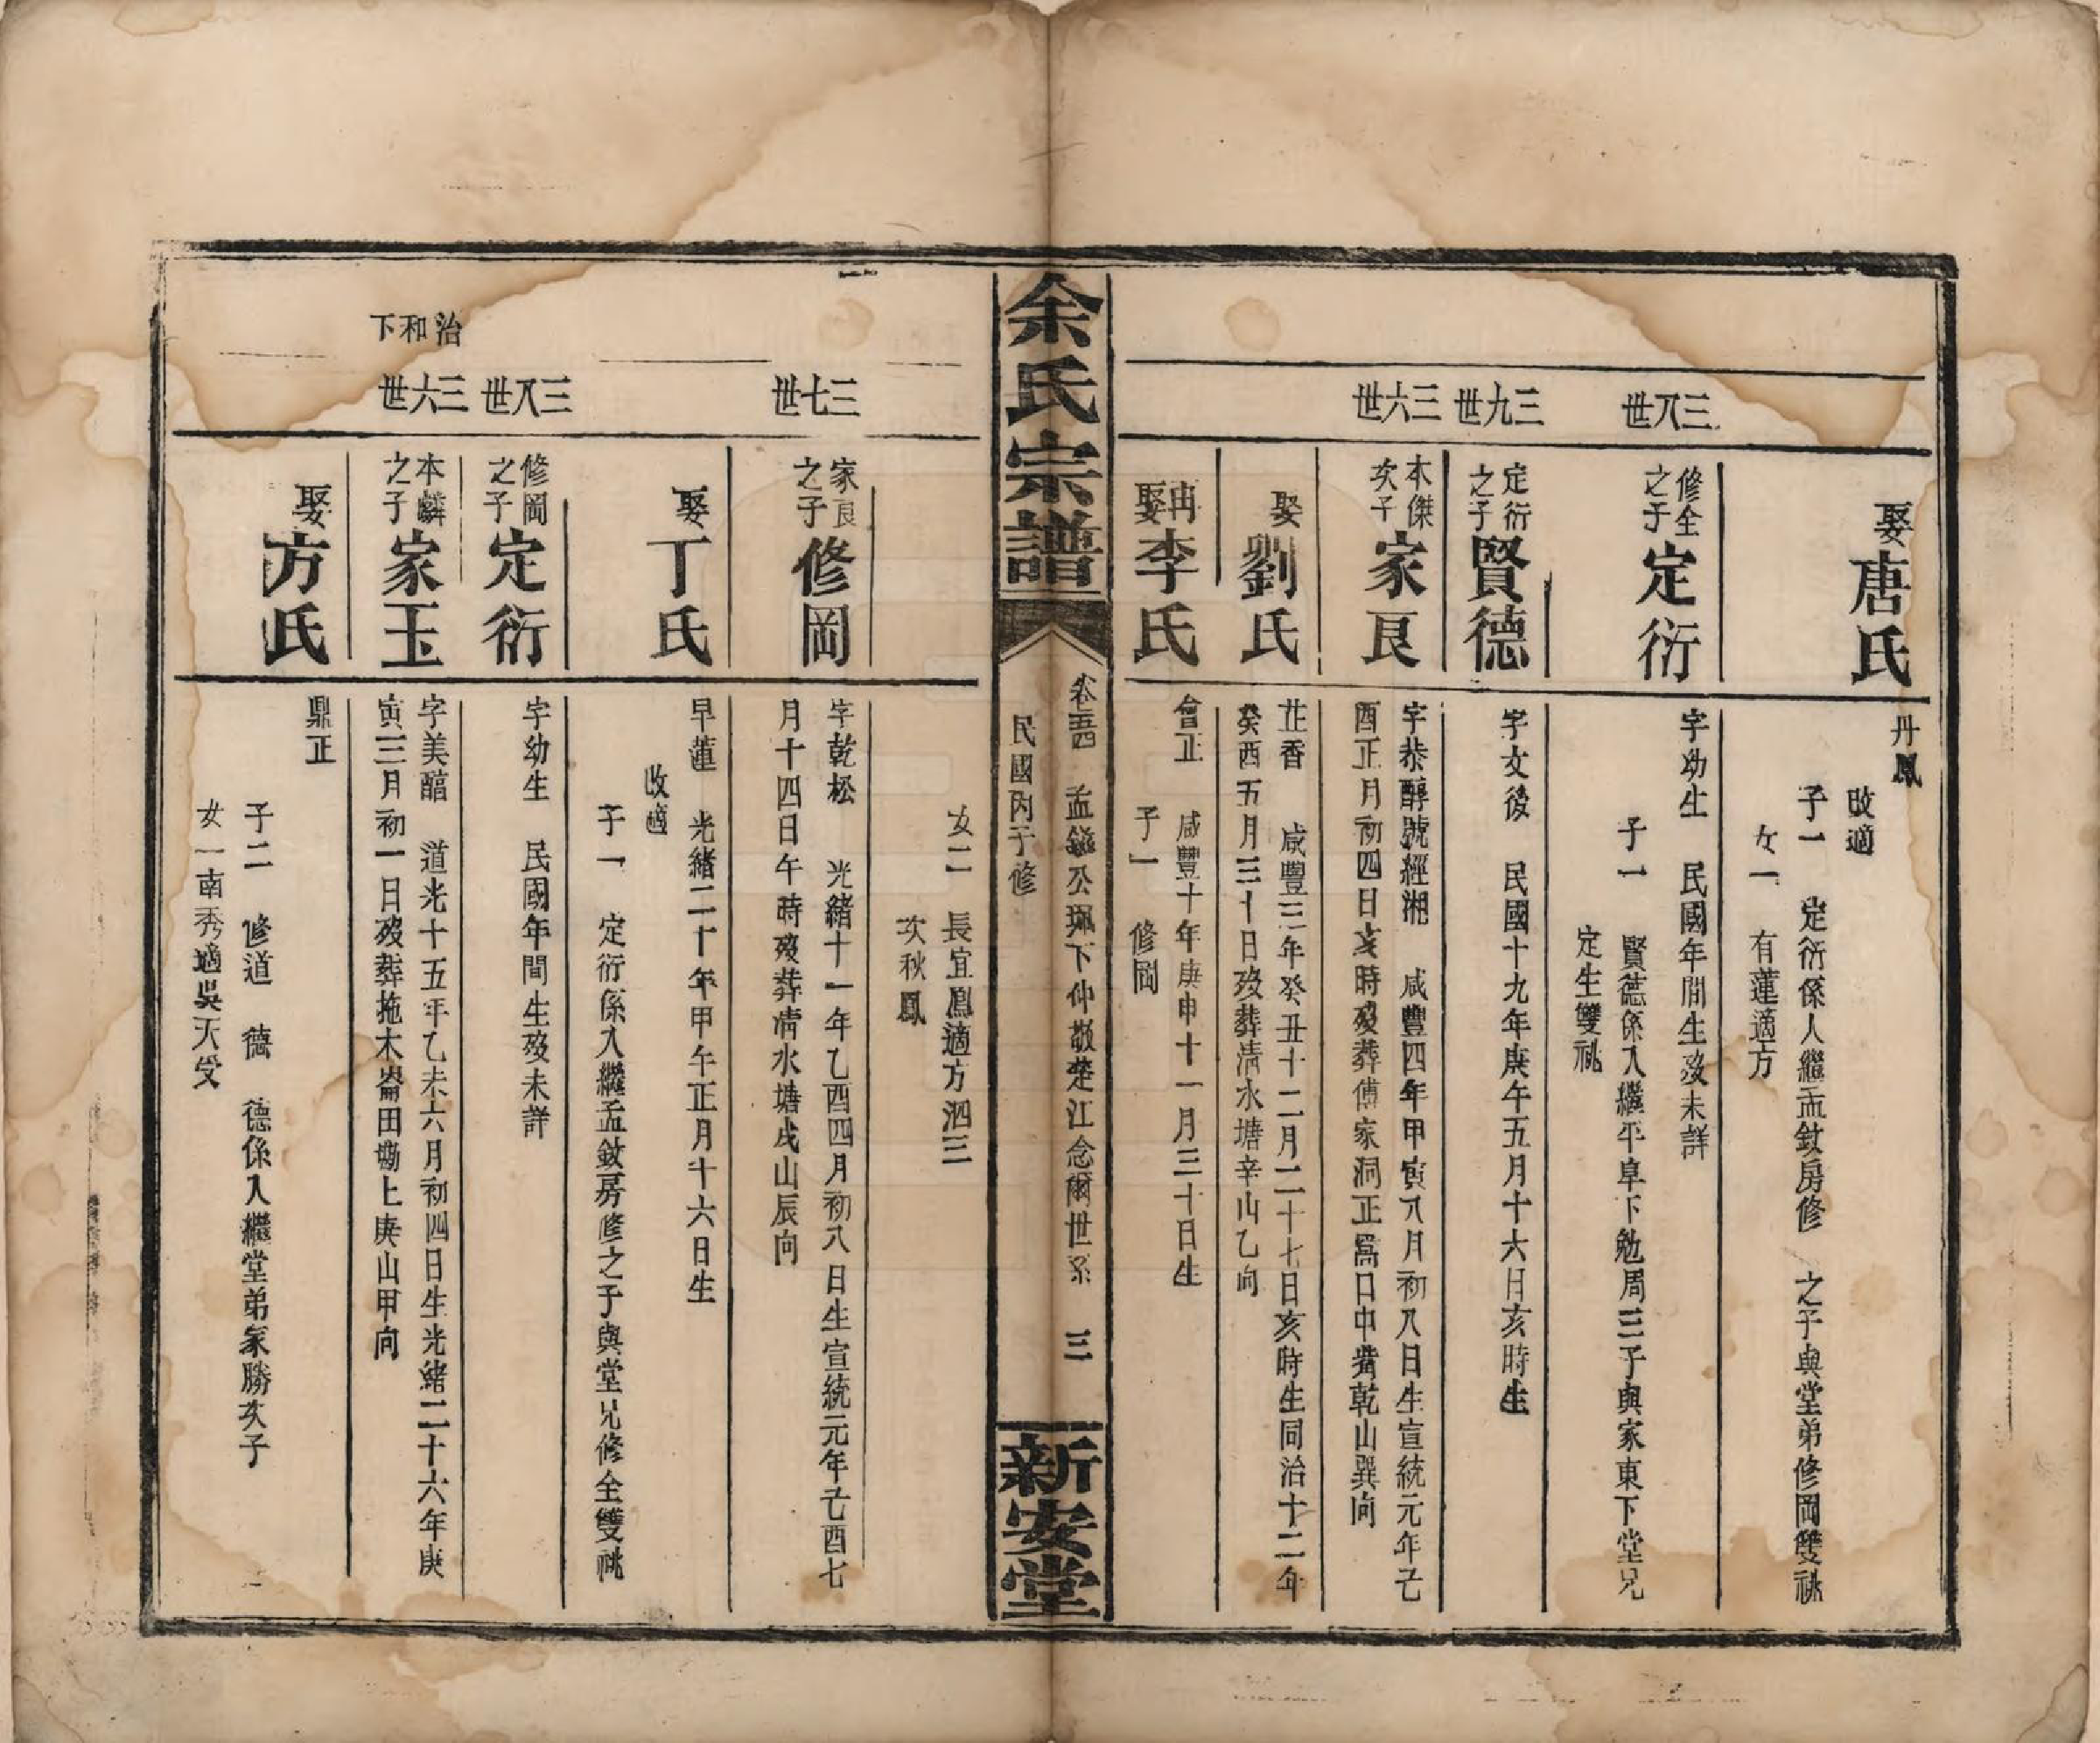 娶唐氏
丹鳳
改適
子一 定衍係人繼孟鈫房修 之子與堂弟修岡雙祧
女一 有蓮適方
三八世
修全之子 定衍
字幼生 民國年間生歿未詳
子一 賢德係入繼平阜下勉周三子與家東下堂兄
定生雙祧
三九世
定衍之子 賢德
字文後 民國十九年庚午五月十六日亥時生
三六世
本傑次子 家良
字恭醇號經湘 咸豐四年甲寅八月初八日生宣統元年己
酉正月初四日亥時歿葬傅家洞正窩口中嘴乾山巽向
娶劉氏
芷香 咸豐三年癸丑十二月二十七日亥時生同治十二年
癸酉五月三十日歿葬清水塘辛山乙向
再娶李氏
會正 咸豐十年庚申十一月三十日生
子一 修岡
余氏宗譜
卷五四 孟 公珮下仲敬楚江念爾世系 三
民國丙子修
新安堂
女二 長宜鳳適方泗三
次秋鳳
三七世
家良之子 修岡
字乾松 光緒十一年乙酉四月初八日生宣統元年己酉七
月十四日午時歿葬清水塘戌山辰向
娶丁氏
早蓮 光緒二十年甲午正月十六日生
改適
子一 定衍係入繼孟鈫房修之子與堂兄修全雙祧
三八世
修岡之子 定衍
字幼生 民國年間生歿未詳
治和下
三六世
本麟之子 家玉
字美醞 道光十五年乙未六月初四日生光緒二十六年庚
寅三月初一日歿葬拖木崙田塝上庚山甲向
娶方氏
鼎正
子二 修道 德 德係入繼堂弟家勝次子
女一南秀適吳天受